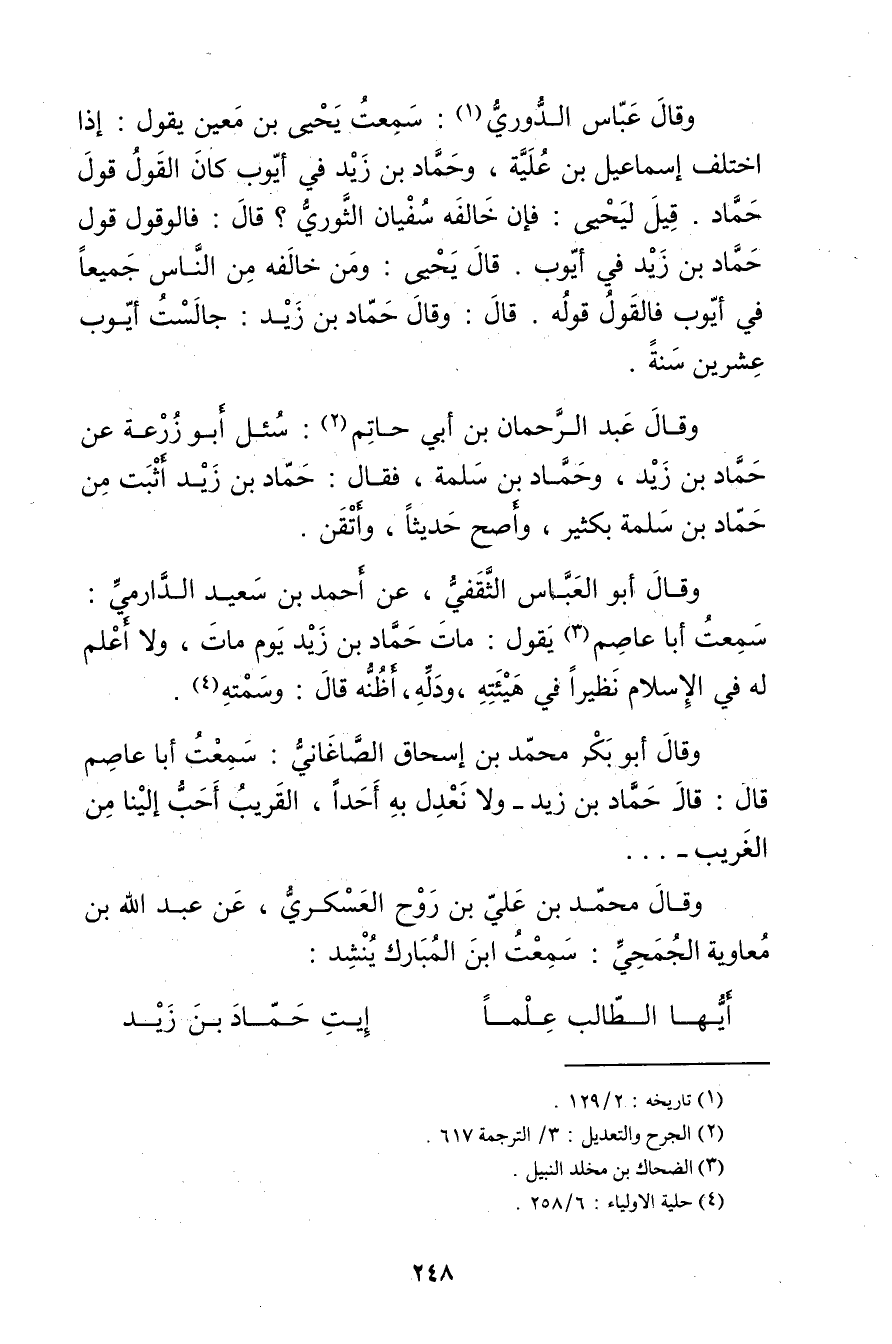 وقالَ عَبّاس الـدُّوريُّ(١) : سَمِعتُ يَحْيى بن مَعين يقول : إذا
اختلف إسماعيل بن عُلَيَّة ، وحَمَّاد بن زَيْد في أيّوب كانَ القَولُ قولَ
حَمَّاد . قِيلَ ليَحْيى : فإن خَالفَه سُفْيان الثَّوريُّ ؟ قالَ : فالوقول قول
حَمَّاد بن زَيْد في أيّوب . قالَ يَحْيى : ومَن خالَفه مِن النَّـاس جَميعاً
في أيّوب فالقَولُ قولُه . قالَ : وقالَ حَمّاد بن زَيْـد : جالَسْتُ أيّـوب
عِشرين سَنةً .
وقـالَ عَبد الـرَّحمان بن أبي حـاتِم(٢) : سُئـل أَبـو زُرْعـة عن
حَمَّاد بن زَيْد ، وحَمَّـاد بن سَلمة ، فقـال : حَمّاد بن زَيْـد أَثْبَت مِن
حَمّاد بن سَلمة بكثير ، وأَصح حَديثاً ، وأَتْقَن .
وقـالَ أبو العَبَّـاس الثَّقَفيُّ ، عن أَحمد بن سَعيـد الـدَّارميِّ :
سَمِعتُ أبا عاصِم(٣) يَقول : ماتَ حَمَّاد بن زَيْد يَوم ماتَ ، ولا أَعْلم
له في الإِسلام نَظيراً في هَيْئَتِهِ ،ودَلِّهِ، أَظُنُّه قالَ : وسَمْتهِ(٤) .
وقالَ أبو بَكْر محمّد بن إسحاق الصَّاغَانيُّ : سَمِعْتُ أبا عاصِم
قالَ : قالَ حَمَّاد بن زيد ـ ولا نَعْدِل بهِ أَحَداً ، القَريبُ أَحَبُّ إليْنا مِن
الغَريب ـ . . .
وقـالَ محمّـد بن عَليّ بن رَوْح العَسْكـريُّ ، عَن عبـد الله بن
مُعاوية الجُمَحِيِّ : سَمِعْتُ ابنَ المُبَارك يُنْشِد :
أَيُّهـا الـطّالب عِـلْمـاً إيـتِ حَـمّـادَ بـنَ زَيْـد
(١) تاريخه : ١٢٩/٢ .
(٢) الجرح والتعديل : ٣/ الترجمة ٦١٧ .
(٣) الضحاك بن مخلد النبيل .
(٤) حلية الاولياء : ٢٥٨/٦ .
٢٤٨